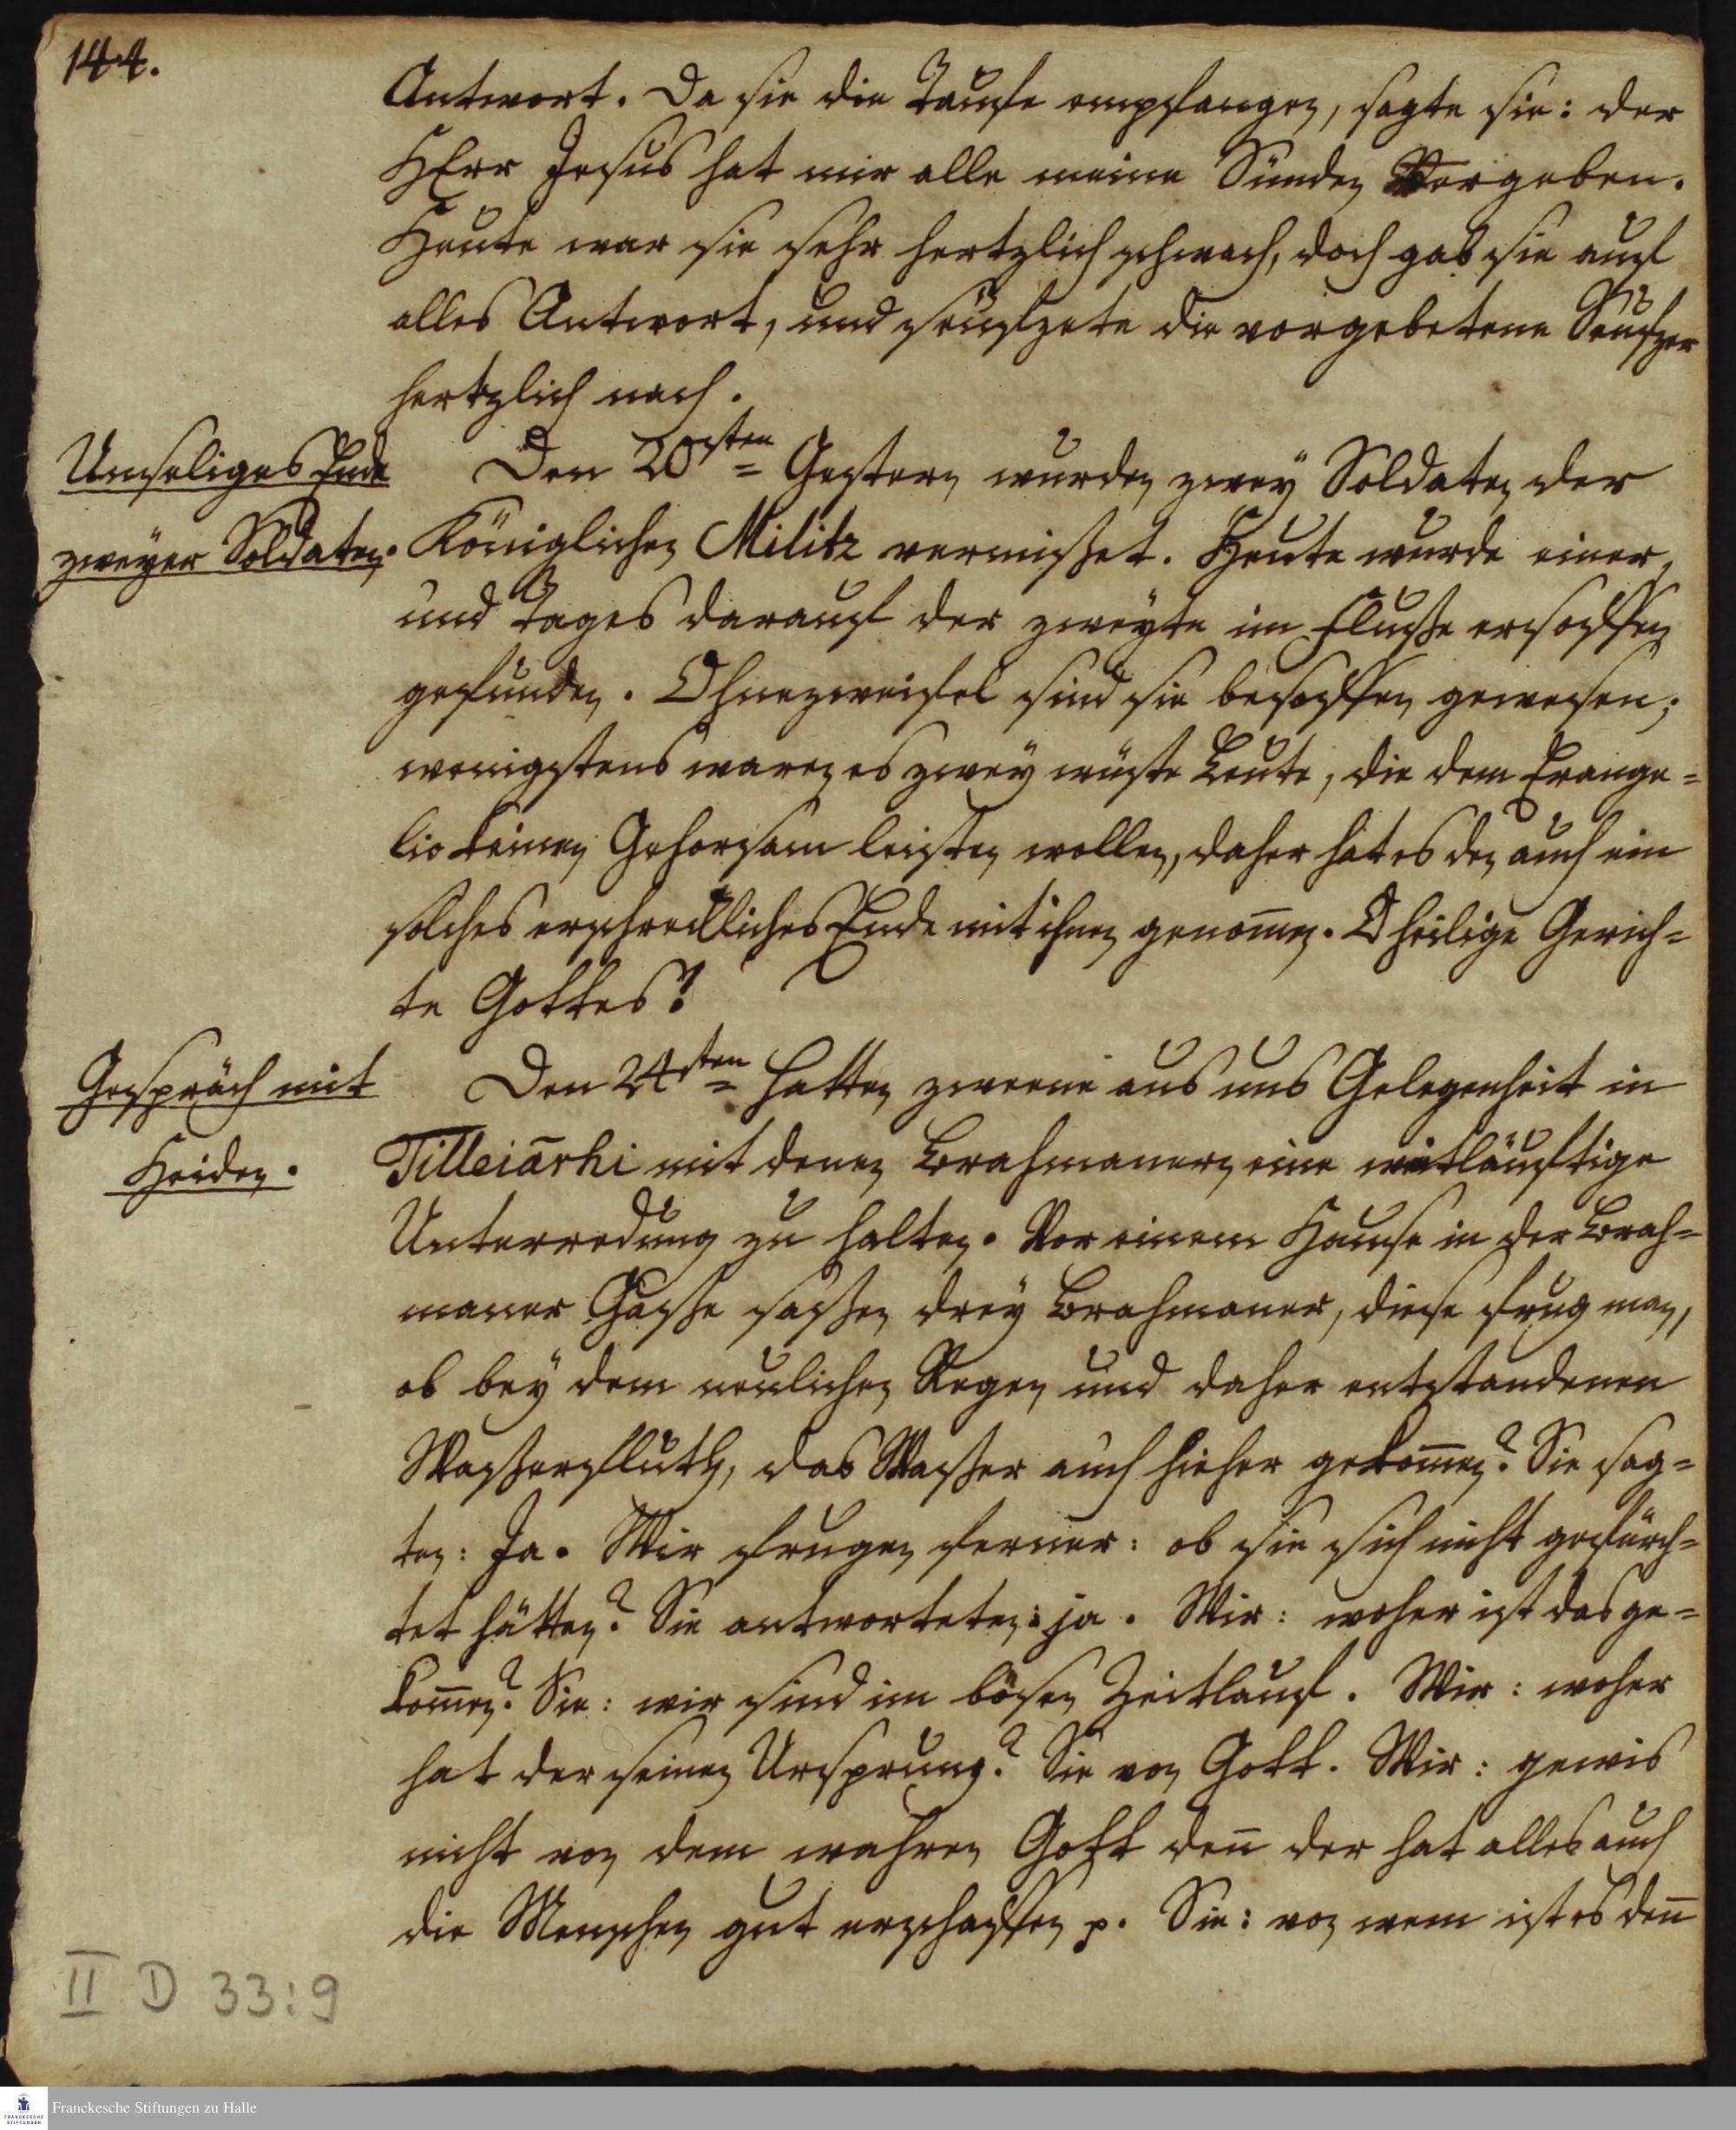 144.
Antwort. Da sie die Taufe empfangen, sagte sie: der
HErr Jesus hat mir alle meine Sünden vergeben.
Heute war sie sehr hertzlich schwach, doch gab sie auf
alles Antwort, und seufzete die vorgebetene Seufzer
hertzlich nach.
Unseliges Ende
zweyer Soldaten.
Den 20sten Gestern wurden zwey Soldaten der
Königlichen Militz vermißet. Heute wurde einer,
und Tages darauf der zweyte im Fluße ersoffen
gefunden. Ohnezweifel sind sie besoffen gewesen;
wenigstens waren es zwey wüste Leute, die dem Evange=
lio keinen Gehorsam leisten wollen, daher hat es den auch ein
solches erschreckliches Ende mit ihnen genom̄en. O heilige Gerich=
te Gottes!
Gespräch mit
Heiden.
Den 24sten hatten zweene aus uns Gelegenheit in
Tilleiārhi mit denen Brahmanern eine weitläuftige
Unterredung zu halten. Vor einem Hause in der Brah=
maner Gaße saßen drey Brahmaner, diese frug man,
ob bey dem neulichen Regen und daher entstandenen
Waßerfluth, das Waßer auch hieher gekom̄en? Sie sag=
ten: Ja. Wir frugen ferner: ob sie sich nicht gefürch=
tet hätten? Sie antworteten: ja. Wir: woher ist das ge=
kom̄en? Sie: wir sind im bösen Zeitlauf. Wir: woher
hat der seinen Ursprung? Sie von Gott. Wir: gewis
nicht von dem wahren Gott den̄ der hat alles auch
die Menschen gut erschaffen p. Sie: von wem ist es den̄
II D 33:9
FRANCKESCHE STIFTUNGEN
Franckesche Stiftungen zu Halle